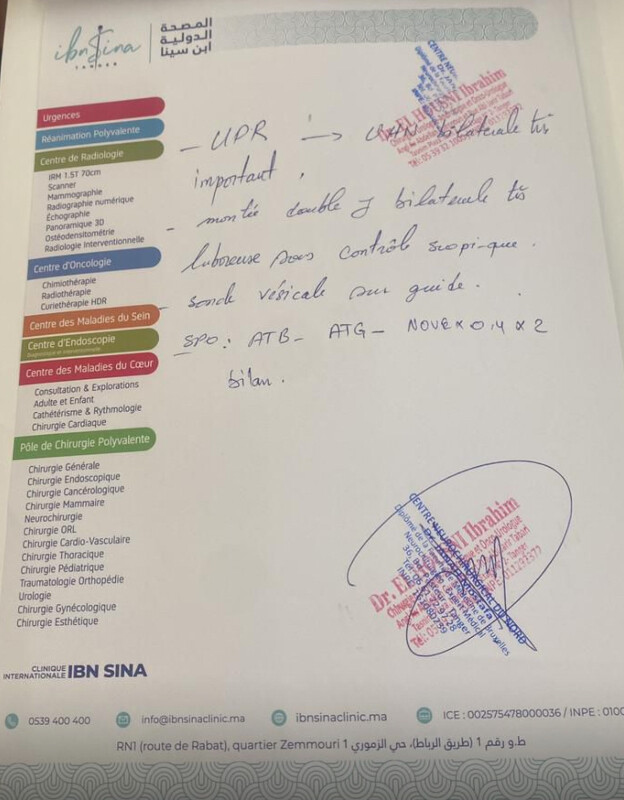 ibn Sina
TANGER
المصحة
الدولية
ابن سينا
Urgences
Réanimation Polyvalente
Centre de Radiologie
IRM 1.5T 70cm
Scanner
Mammographie
Radiographie numérique
Échographie
Panoramique 3D
Ostéodensitométrie
Radiologie Interventionnelle
Centre d'Oncologie
Chimiothérapie
Radiothérapie
Curiethérapie HDR
Centre des Maladies du Sein
Centre d'Endoscopie
Centre des Maladies du Cœur
Consultation & Explorations
Adulte et Enfant
Cathétérisme & Rythmologie
Chirurgie Cardiaque
Pôle de Chirurgie Polyvalente
Chirurgie Générale
Chirurgie Endoscopique
Chirurgie Cancérologique
Chirurgie Mammaire
Neurochirurgie
Chirurgie ORL
Chirurgie Cardio-Vasculaire
Chirurgie Thoracique
Chirurgie Pédiatrique
Traumatologie Orthopédie
Urologie
Chirurgie Gynécologique
Chirurgie Esthétique
- UPR → UHN bilaterale tis
important,
- montée double J bilaterale tis
laborieuse sous contrôle scopi-que.
- sonde vésicale sur guide.
SPO: ATB - ATG - NOVEX 0,4 x 2
bilan.
Dr. EL HOUSNI Ibrahim
CENTRE NEUROCHIRURGICAL DU NORD
Dr. EL HOUSNI Ibrahim
CLINIQUE
INTERNATIONALE IBN SINA
0539 400 400
info@ibnsinaclinic.ma
ibnsinaclinic.ma
ICE : 002575478000036 / INPE : 0100
RN1 (route de Rabat), quartier Zemmouri 1 ط.و رقم 1 (طريق الرباط)، حي الزموري 1